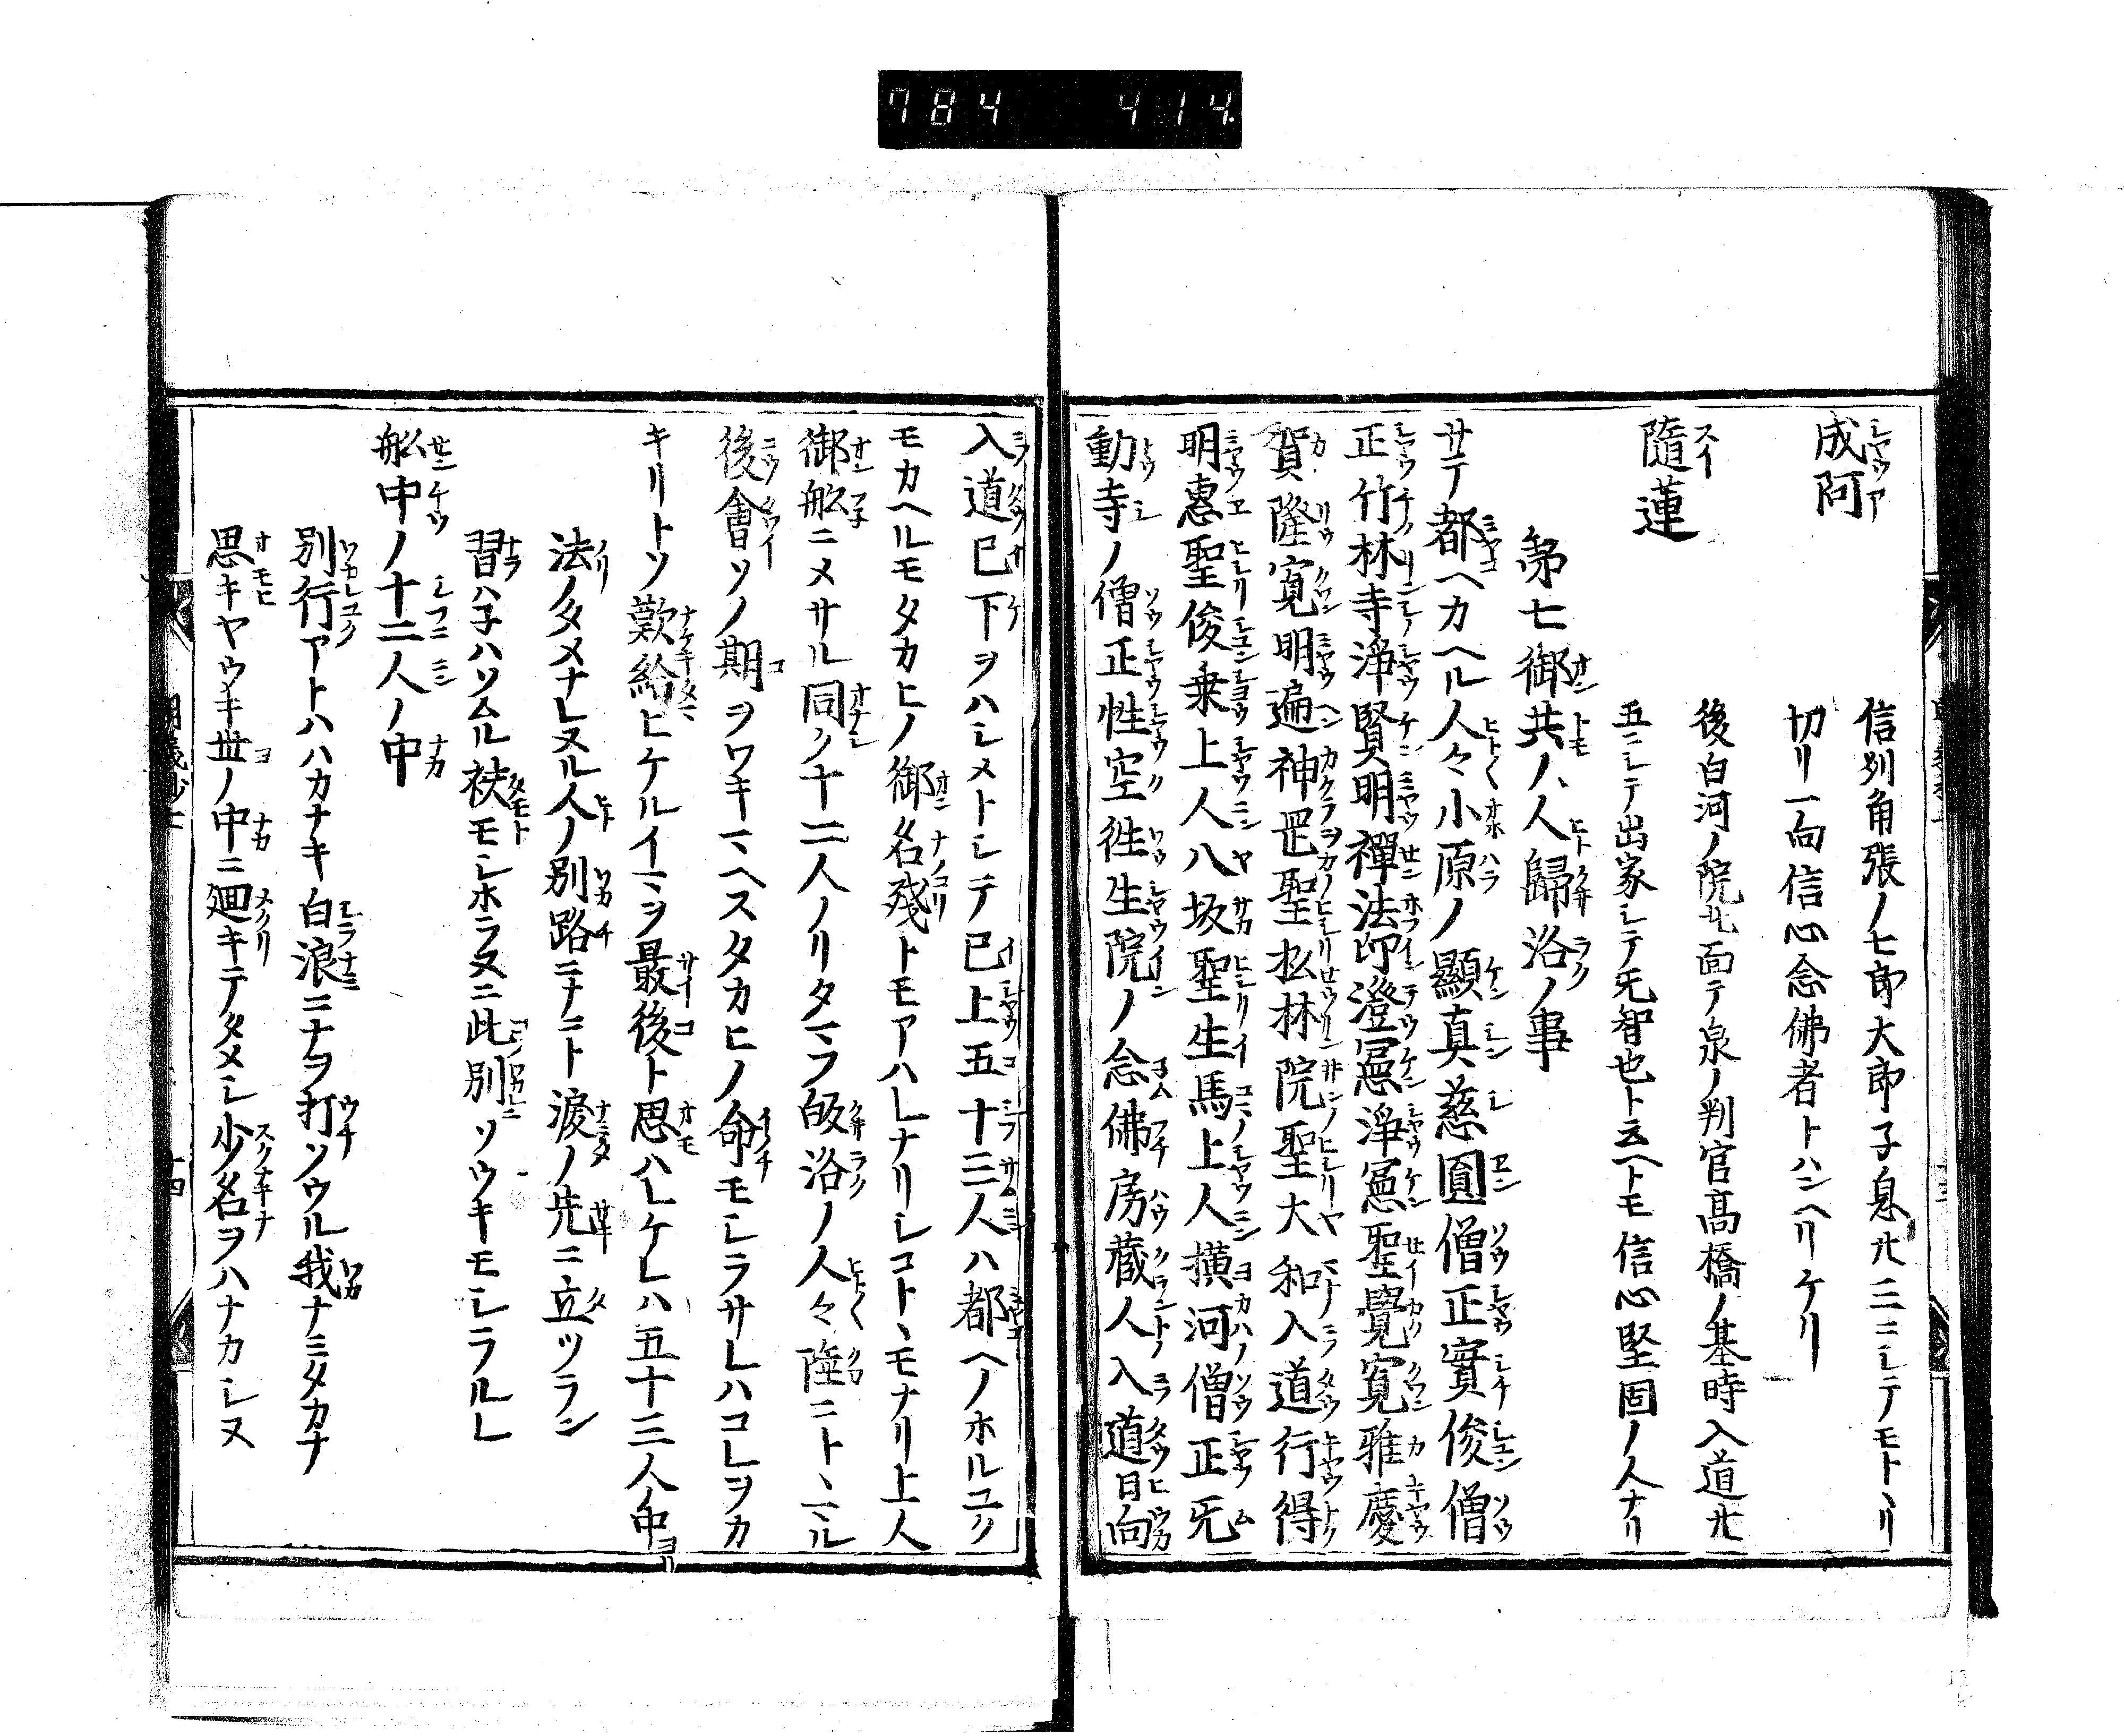 784 414
成阿
信列角張ノ七郎大郎子息廾二ニシテモトヽリ
切リ一向信心念佛者トハンヘリケリ
後白河ノ院北面テ泉ノ判官高橋ノ基時入道廾
隨蓮
五ニシテ出家シテ旡智也ト云ヘトモ信心堅固ノ人ナリ
第七御共ノ人歸洛ノ事
サテ都ヘカヘル人々小原ノ顯真慈圓僧正實俊僧
正竹林寺淨賢明禪法印澄憲淨憲聖覺寛雅慶
賀隆寛明遍神罡聖松林院聖大和入道行得
明惠聖俊乗上人八坂聖生馬上人横河僧正旡
動寺ノ僧正性空徃生院ノ念佛房蔵人入道日向
入道已下ヲハシメトシテ已上五十三人ハ都ヘノホルユク
モカヘルモタカヒノ御名殘トモアハレナリシコトヽモナリ上人
御舩ニメサル同ク十二人ノリタマフ皈洛ノ人々陸ニトヽマル
後會ソノ期ヲワキマヘスタカヒノ命モシラサレハコレヲカ
キリトソ歎給ヒケルイマヲ最後ト思ハレケレハ五十三人ノ中ヨリ
法ノタメナレヌル人ノ別路ニナニト淚ノ先ニ立ツラン
習ハ子ハソムル袂モシホラヌニ此別ソウキモシラルレ
舩中ノ十二人ノ中
別行アトハハカナキ白浪ニナヲ打ソウル我ナミタカナ
思キヤウキ丗ノ中ニ廻キテタメシ少名ヲハナカシヌ